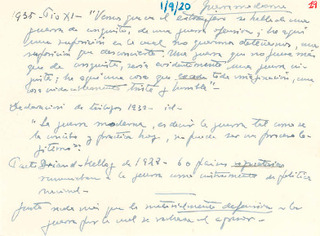 1/9/20 guerra moderna 29
1935 - Pio XI - "Vemos que en el extranjero se habla de una
guerra de conquista, de una guerra ofensiva; he aquí
una suposición en la cual no queremos detenernos, una
suposición que desconcierta. Una guerra que no fuera más
que de conquista, sería evidentemente una guerra in-
justa; he aquí una cosa que toda imaginación, una
cosa triste y horrible".
Declaración de 1939 - id -
"La guerra moderna, es decir la guerra tal como se
la concibe y practica hoy, no puede ser un proceso le-
gítimo".
Pacto Briand-Kellog de 1928 - 60 países
renunciaban a la guerra como instrumento de política
nacional -
Justa nada más que la defensiva - la
guerra por la cual se rechaza al agresor -